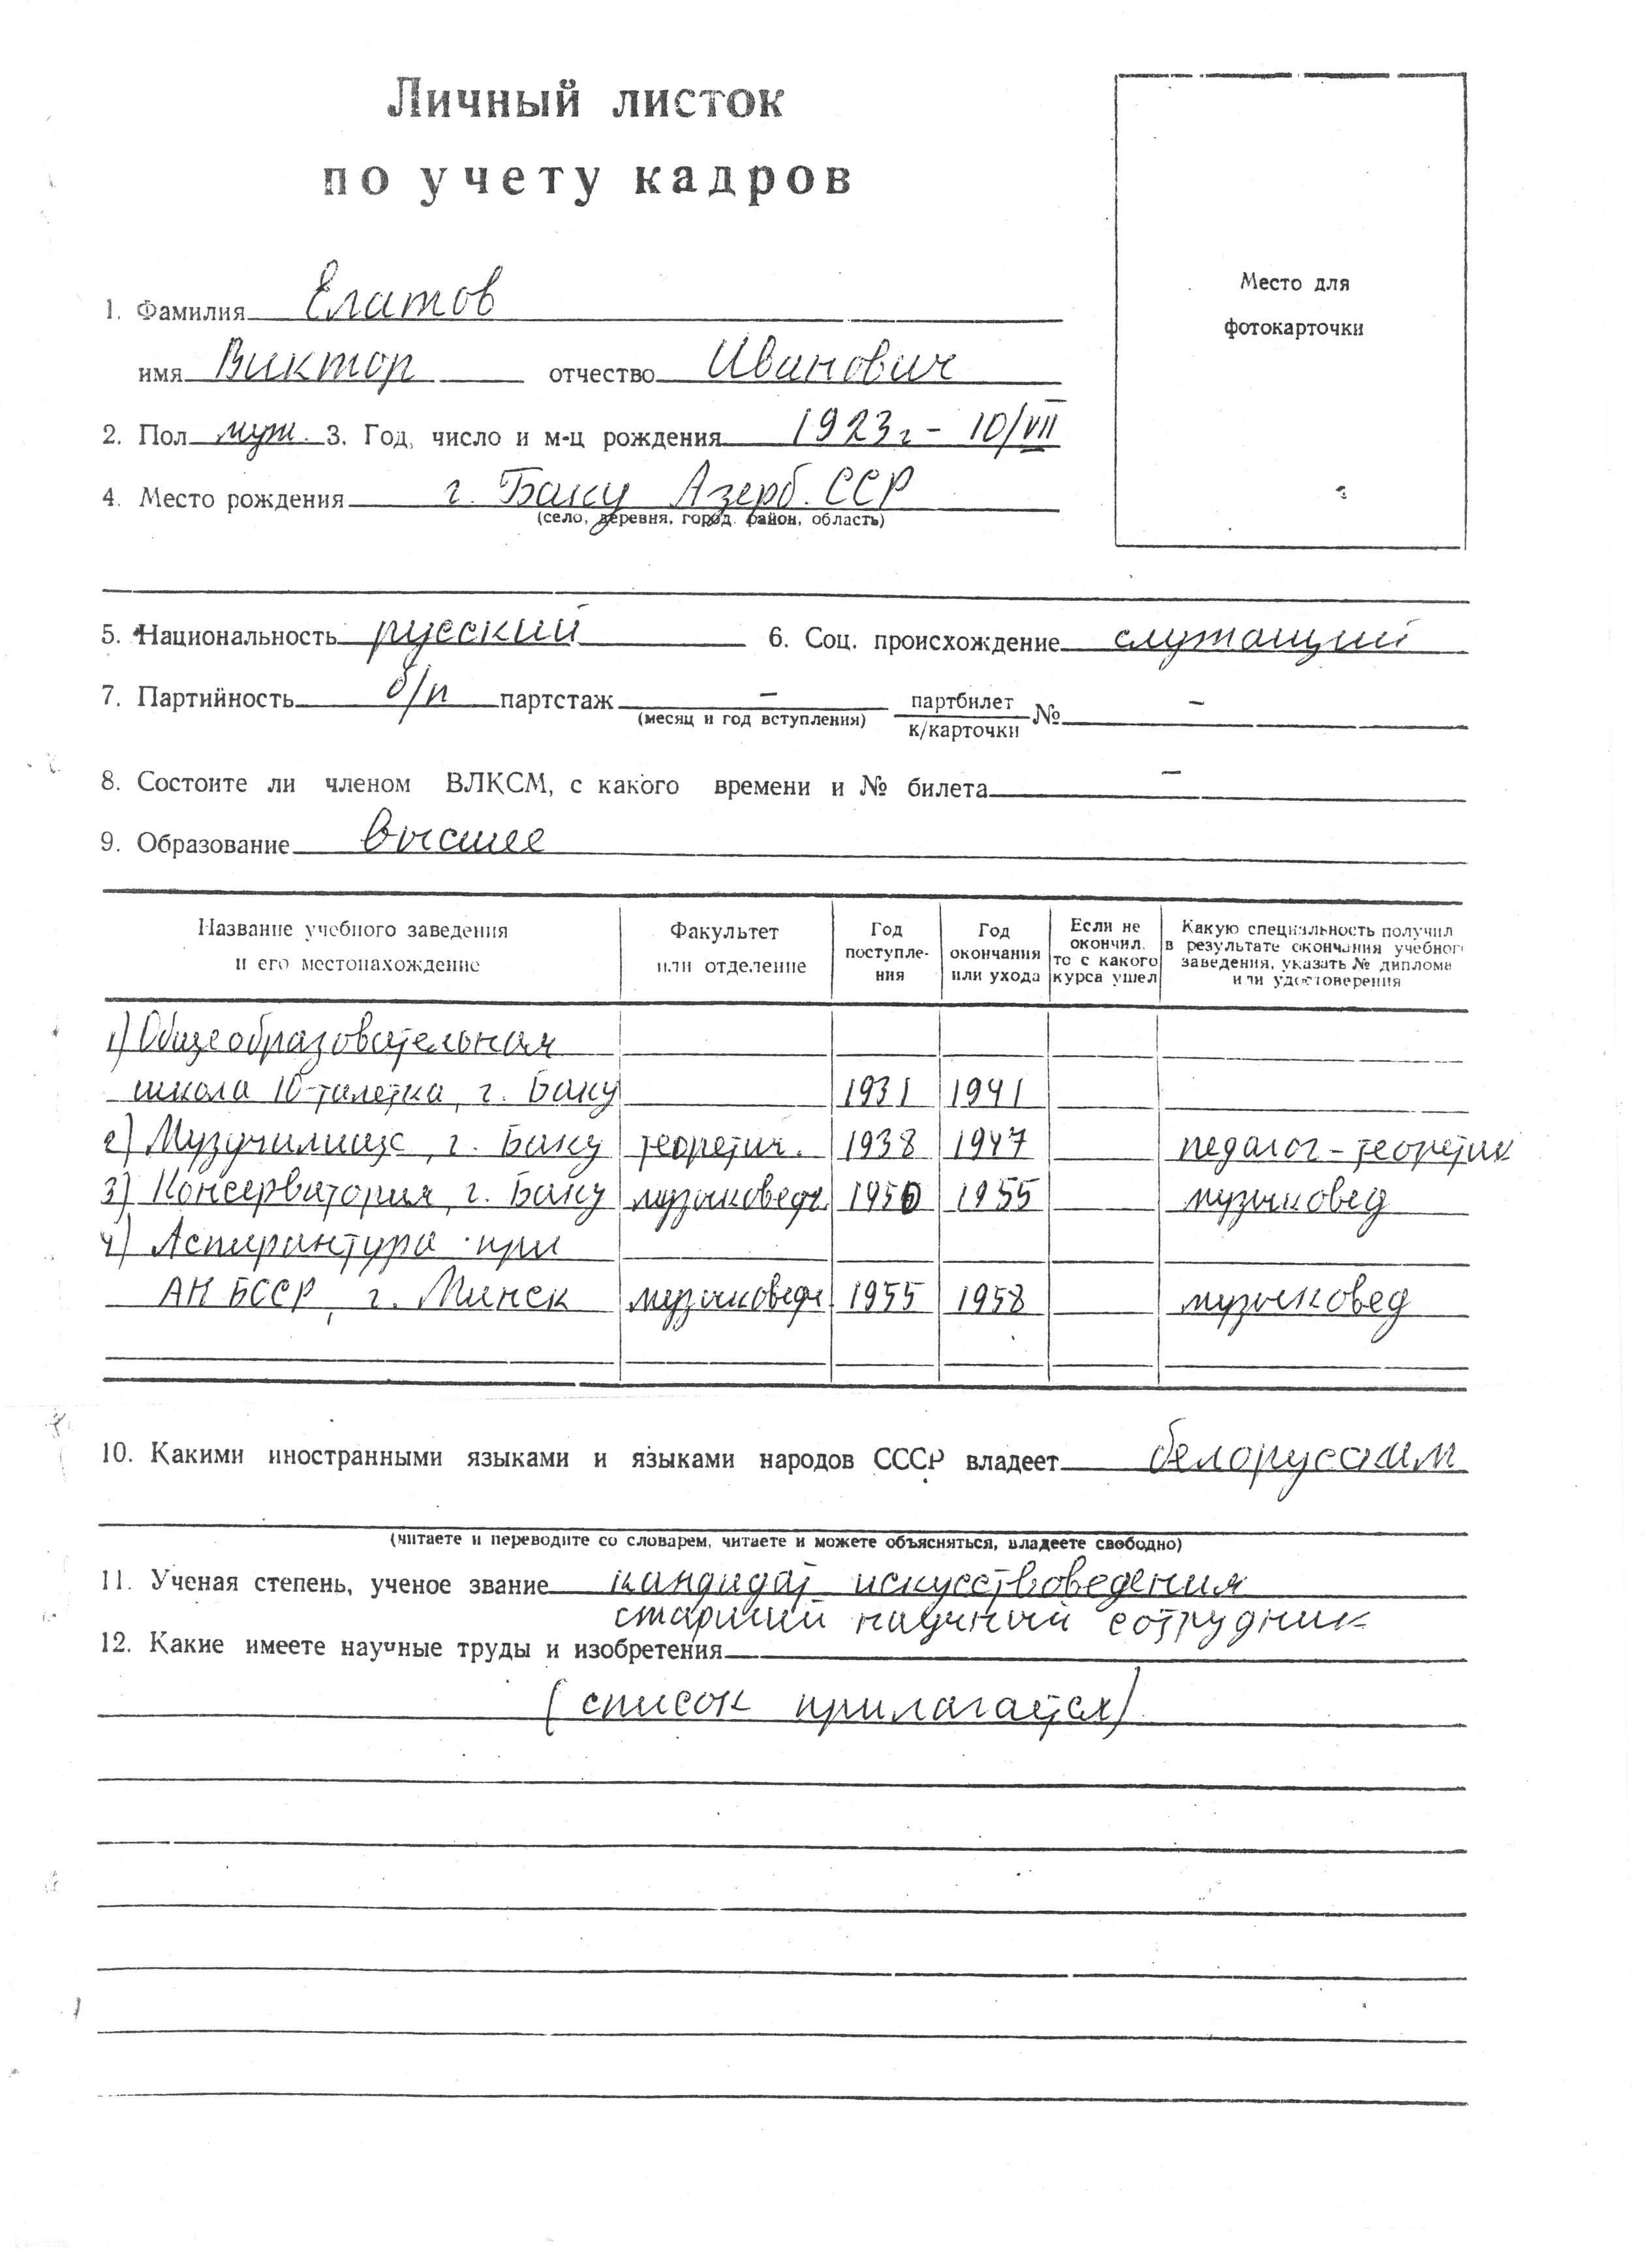 Личный листок
по учету кадров
Место для
фотокарточки
1. Фамилия Елатов
имя Виктор отчество Иванович
2. Пол муж. 3. Год, число и м-ц рождения 1923 г - 10/VII
4. Место рождения г. Баку Азерб. ССР
(село, деревня, город, район, область)
5. Национальность русский 6. Соц. происхождение служащий
7. Партийность б/п партстаж – партбилет № –
(месяц и год вступления) к/карточки
8. Состоите ли членом ВЛКСМ, с какого времени и № билета –
9. Образование высшее
Название учебного заведения и его местонахождение
Факультет или отделение
Год поступле-ния
Год окончания или ухода
Если не окончил, то с какого курса ушел
Какую специальность получил в результате окончания учебного заведения, указать № диплома или удостоверения
1) Общеобразовательная
школа 10-тилетка, г. Баку 1931 1941
2) Музучилище, г. Баку теоретич. 1938 1947 педагог-теоретик
3) Консерватория, г. Баку музыковедч. 1950 1955 музыковед
4) Аспирантура при
АН БССР, г. Минск музыковедч. 1955 1958 музыковед
10. Какими иностранными языками и языками народов СССР владеет белорусским
(читаете и переводите со словарем, читаете и можете объясняться, владеете свободно)
11. Ученая степень, ученое звание кандидат искусствоведения
старший научный сотрудник
12. Какие имеете научные труды и изобретения
(список прилагается)